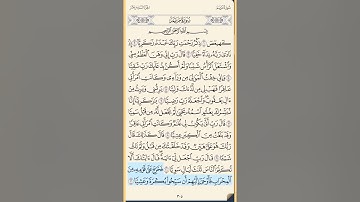 سُورَةُ مَرْيَمَ الجُزْءُ السَّادِسَ عَشَرَ
سُورَةُ مَرْيَمَ
بِسْمِ ٱللَّهِ ٱلرَّحْمَٰنِ ٱلرَّحِيمِ
كٓهيعٓصٓ ١ ذِكْرُ رَحْمَتِ رَبِّكَ عَبْدَهُۥ زَكَرِيَّآ ٢ إِذْ
نَادَىٰ رَبَّهُۥ نِدَآءً خَفِيًّا ٣ قَالَ رَبِّ إِنِّى وَهَنَ ٱلْعَظْمُ مِنِّى
وَٱشْتَعَلَ ٱلرَّأْسُ شَيْبًا وَلَمْ أَكُنۢ بِدُعَآئِكَ رَبِّ شَقِيًّا ٤
وَإِنِّى خِفْتُ ٱلْمَوَٰلِىَ مِن وَرَآءِى وَكَانَتِ ٱمْرَأَتِى
عَاقِرًا فَهَبْ لِى مِن لَّدُنكَ وَلِيًّا ٥ يَرِثُنِى وَيَرِثُ مِنْ
ءَالِ يَعْقُوبَ وَٱجْعَلْهُ رَبِّ رَضِيًّا ٦ يَٰزَكَرِيَّآ إِنَّا
نُبَشِّرُكَ بِغُلَٰمٍ ٱسْمُهُۥ يَحْيَىٰ لَمْ نَجْعَل لَّهُۥ مِن قَبْلُ سَمِيًّا ٧
قَالَ رَبِّ أَنَّىٰ يَكُونُ لِى غُلَٰمٌ وَكَانَتِ ٱمْرَأَتِى عَاقِرًا
وَقَدْ بَلَغْتُ مِنَ ٱلْكِبَرِ عِتِيًّا ٨ قَالَ كَذَٰلِكَ قَالَ
رَبُّكَ هُوَ عَلَىَّ هَيِّنٌ وَقَدْ خَلَقْتُكَ مِن قَبْلُ وَلَمْ تَكُ
شَيْـًٔا ٩ قَالَ رَبِّ ٱجْعَل لِّىٓ ءَايَةً قَالَ ءَايَتُكَ أَلَّا
تُكَلِّمَ ٱلنَّاسَ ثَلَٰثَ لَيَالٍ سَوِيًّا ١٠ فَخَرَجَ عَلَىٰ قَوْمِهِۦ مِنَ
ٱلْمِحْرَابِ فَأَوْحَىٰٓ إِلَيْهِمْ أَن سَبِّحُوا۟ بُكْرَةً وَعَشِيًّا ١١
٣٠٥